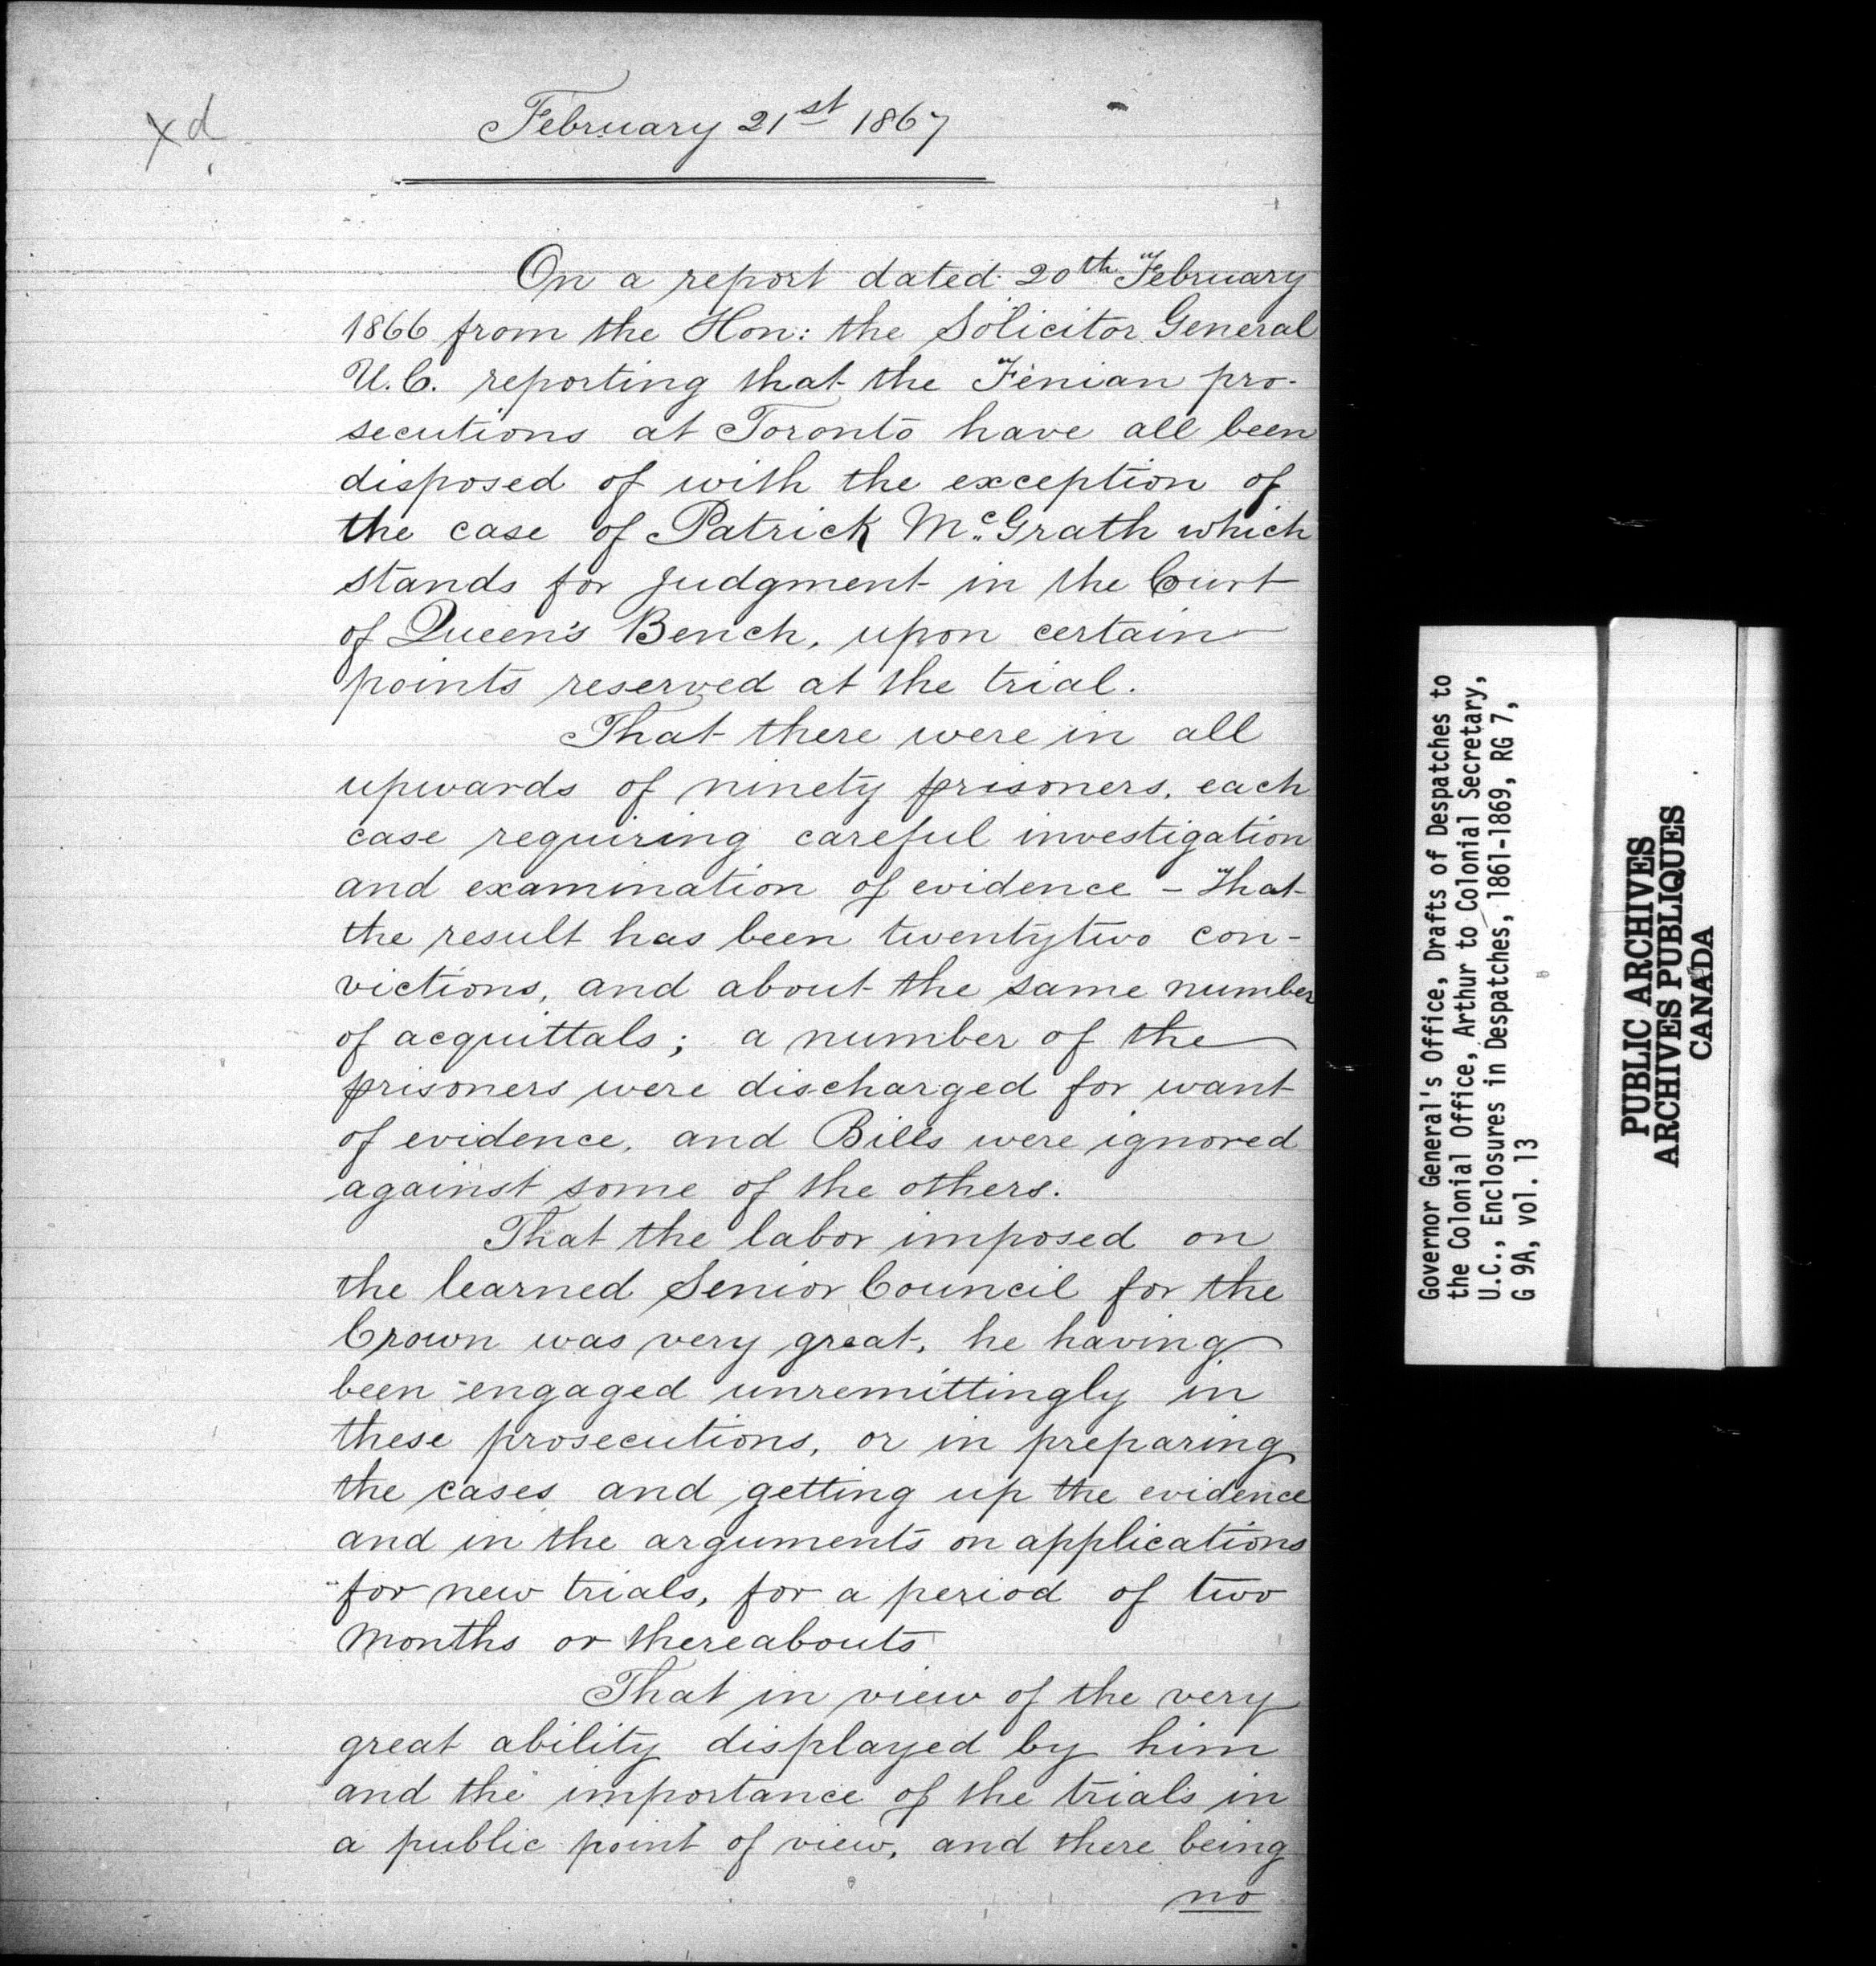 xd
February 21st 1867
On a report dated 20th February
1866 from the Hon: the Solicitor General
U.C. reporting that the Fenian pro-
secutions at Toronto have all been
disposed of with the exception of
the case of Patrick McGrath which
stands for judgment in the Court
of Queen's Bench, upon certain
points reserved at the trial.
That there were in all
upwards of ninety prisoners, each
case requiring careful investigation
and examination of evidence – That
the result has been twentytwo con-
victions, and about the same number
of acquittals; a number of the
prisoners were discharged for want
of evidence, and Bills were ignored
against some of the others.
That the labor imposed on
the learned Senior Council for the
Crown was very great, he having
been engaged unremittingly in
these prosecutions, or in preparing
the cases and getting up the evidence
and in the arguments on applications
for new trials, for a period of two
months or thereabouts
That in view of the very
great ability displayed by him
and the importance of the trials in
a public point of view, and there being
no
Governor General's Office, Drafts of Despatches to
the Colonial Office, Arthur to Colonial Secretary,
U.C., Enclosures in Despatches, 1861-1869, RG 7,
G 9A, vol. 13
PUBLIC ARCHIVES
ARCHIVES PUBLIQUES
CANADA